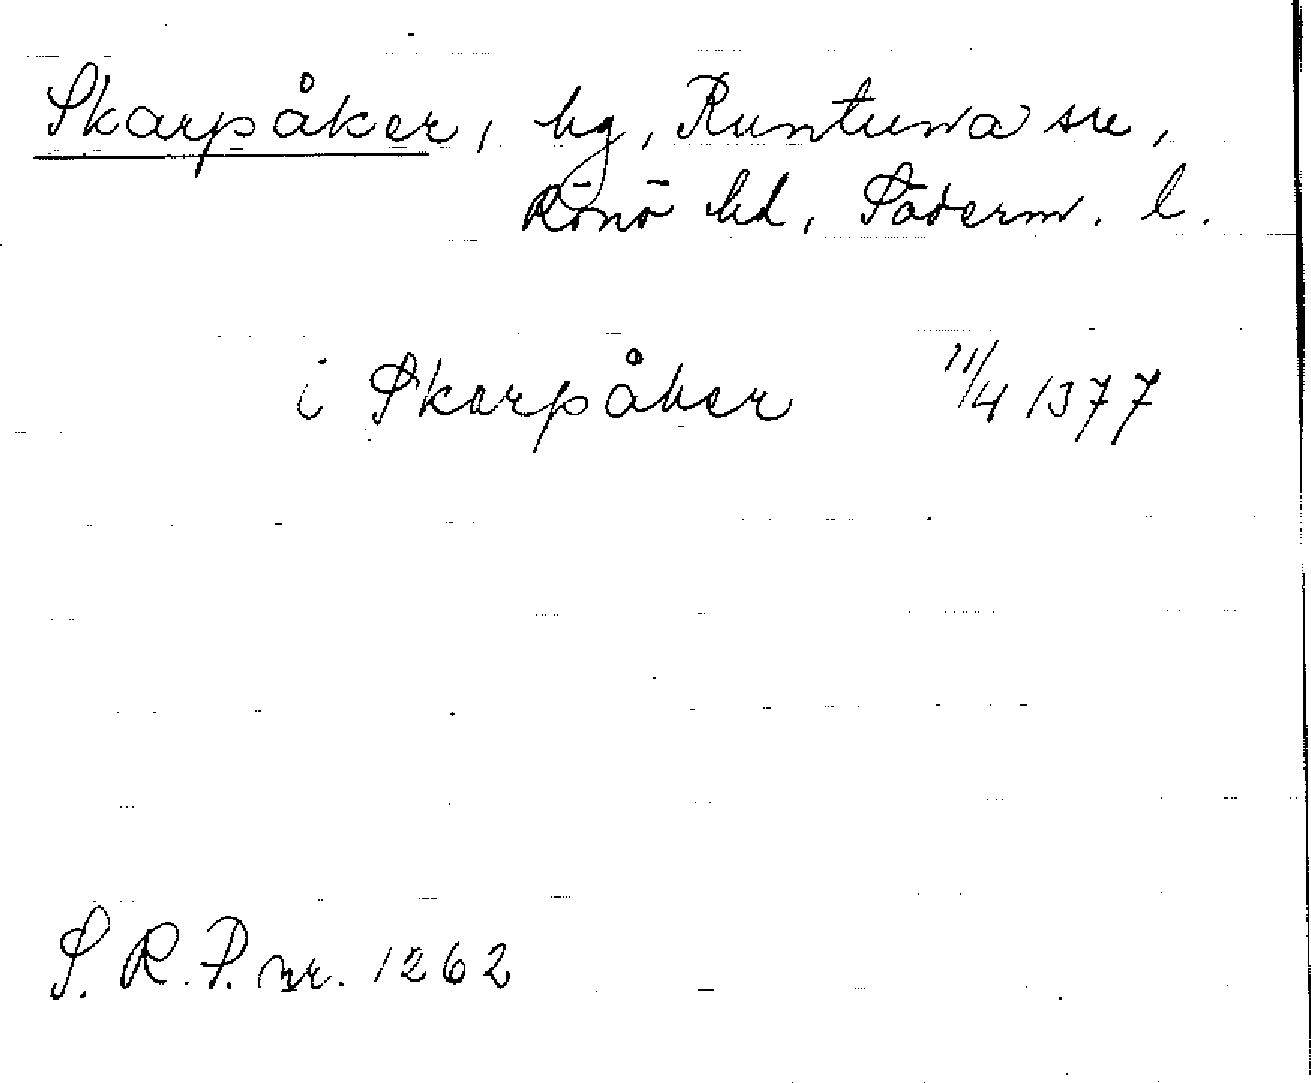 Skarpåker, hg, Runtuna sn,
Rönö hd, Söderm. l.
i Skarpåker 11/4 1377
S. R. P. nr. 1262